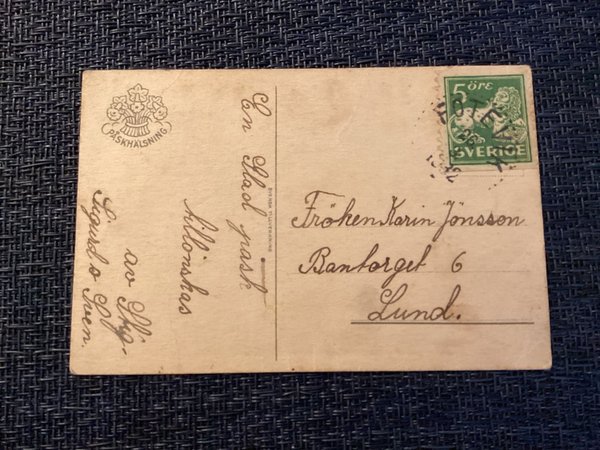 PÅSKHÄLSNING
En Glad påsk
tillönskas
av Stig
Sigurd o Sven.
SVENSK TILLVERKNING
5 ÖRE
SVERIGE
Fröken Karin Jönsson
Bantorget 6
Lund.